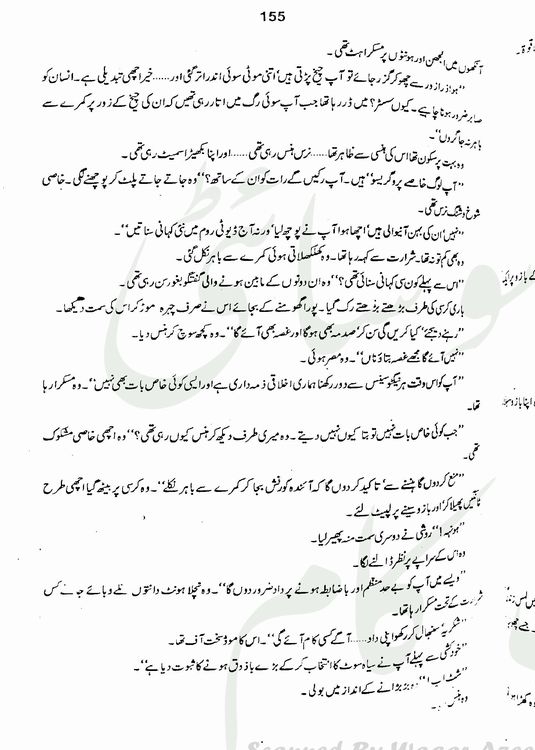 155
آنکھوں میں الجھن اور ہونٹوں پر مسکراہٹ تھی۔
”ہوا ذرا زور سے چھو کر گزر جائے تو آپ چیخ پڑتی ہیں‘ اتنی موٹی سوئی اندر اتر گئی اور......خیر اچھی تبدیلی ہے۔ انسان کو
صابر ضرور ہونا چاہیے۔ کیوں سسٹر؟ میں ڈر رہا تھا جب آپ سوئی رگ میں اتار رہی تھیں کہ ان کی چیخ کے زور پر کمرے سے
باہر نہ جا گروں“۔
وہ بہت پرسکون تھا اس کی ہنسی سے ظاہر تھا......نرس ہنس رہی تھی......اور اپنا بکھیڑا سمیٹ رہی تھی۔
”آپ لوگ خاصے پروگریسو‘ ہیں۔ آپ رکیں گے رات کو ان کے ساتھ؟“ وہ جاتے جاتے پلٹ کر پوچھنے لگی۔ خاصی
شوخ و شنگ نرس تھی۔
”نہیں‘ ان کی بہن آنیوالی ہیں‘ اچھا ہوا آپ نے پوچھ لیا‘ ورنہ آج ڈیوٹی روم میں نئی کہانی سناتیں“۔
وہ بھی کم تو نہ تھا۔ شرارت سے کہہ رہا تھا۔ وہ کھلکھلاتی ہوئی کمرے سے باہر نکل گئی۔
”اس سے پہلے کون سی کہانی سنائی تھی؟“ وہ ان دونوں کے مابین ہونے والی گفتگو بغور سن رہی تھی۔
باری کرسی کی طرف بڑھتے بڑھتے رک گیا۔ پورا گھومنے کے بجائے اس نے صرف چہرہ موڑ کر اس کی سمت دیکھا۔
”رہنے دیجئے‘ کیا کریں گی سن کر‘ صدمہ بھی ہوگا اور غصہ بھی آئے گا“۔ وہ کچھ سوچ کر ہنس دیا۔
”نہیں آئے گا مجھے غصہ بتاؤ ناں“۔ وہ مصر ہوئی۔
”آپ کو اس وقت ہر نیگیٹو سینس سے دور رکھنا ہماری اخلاقی ذمہ داری ہے اور ایسی کوئی خاص بات بھی نہیں“۔ وہ مسکرا رہا
تھا۔
”جب کوئی خاص بات نہیں تو بتا کیوں نہیں دیتے۔ وہ میری طرف دیکھ کر ہنس کیوں رہی تھی؟“ وہ اچھی خاصی مشکوک
تھی۔
”منع کر دوں گا ہنسنے سے‘ تاکید کر دوں گا کہ آئندہ کورنش بجا کر کمرے سے باہر نکلے“۔ وہ کرسی پر بیٹھ گیا اچھی طرح
ٹانگیں پھیلا کر‘ اور بازو سینے پر لپیٹ لئے۔
”ہونہہ!“ روشی نے دوسری سمت منہ پھیر لیا۔
وہ اس کے سراپے پر نظر ڈالنے لگا۔
”ویسے میں آپ کو بے حد منظم اور باضابطہ ہونے پر داد ضرور دوں گا“۔ وہ نچلا ہونٹ دانتوں تلے دبائے جانے کس
شرارت کے تحت مسکرا رہا تھا۔
”شکریہ‘ سنبھال کر رکھو اپنی داد......آگے کسی کام آئے گی“۔ اس کا موڈ سخت آف تھا۔
”خودکشی سے پہلے آپ نے سیاہ سوٹ کا انتخاب کر کے بڑے باذوق ہونے کا ثبوت دیا ہے“۔
”شٹ اپ!“ وہ بڑبڑانے کے انداز میں بولی۔
وہ ہنس